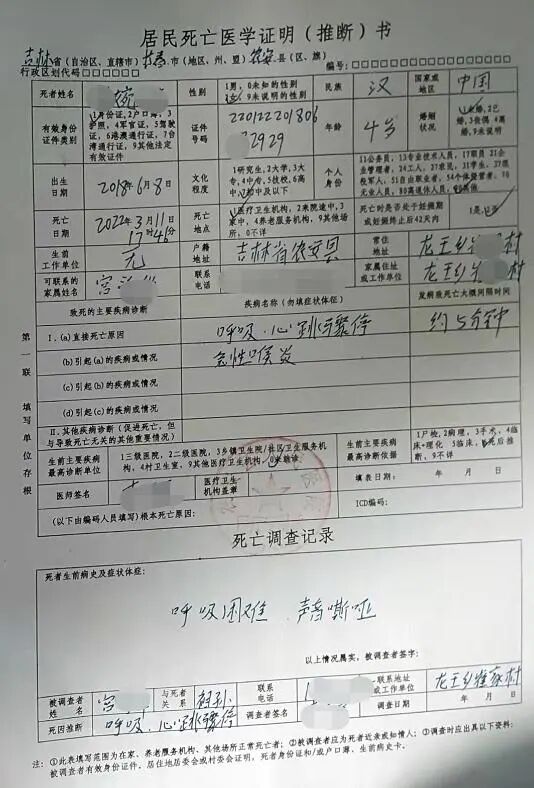 居民死亡医学证明（推断）书
吉林省（自治区、直辖市）长春市（地区、州、盟）农安县（区、旗）
行政区划代码□□□□□□ 编号：□□□□□□□□□□□□
死者姓名 性别 1男，0未知的性别 民族 汉 国家或地区 中国
女，9未说明的性别
有效身份证件类别 1身份证，2户口簿，3护照，4军官证，5驾驶证，6港澳通行证，7台湾通行证，9其他法定有效证件 证件号码 220122201806 2929 年龄 4岁 婚姻状况 1未婚，2已婚，3丧偶，4离婚，9未说明
出生日期 2018年6月8 文化程度 1研究生，2大学，3大专，4中专，5技校，6高中，初中及以下 个人身份 11公务员，13专业技术人员，17职员，21企业管理者，24工人，27农民，31学生，37现役军人，51自由职业者，54个体经营者，70无业人员，80离退休人员，
死亡日期 2022年3月11日 17时46分 死亡地点 1医疗卫生机构，2来院途中，3家中，4养老服务机构，9其他场所，0不详 死亡时是否处于妊娠期或妊娠终止后42天内 1是，2否
生前工作单位 无 户籍地址 吉林省农安县 常住地址 龙王乡 村
可联系的家属姓名 宫 联系电话 家属住址或工作单位 龙王乡 村
致死的主要疾病诊断 疾病名称（勿填症状体征） 发病致死亡大概间隔时间
Ⅰ.(a)直接死亡原因 呼吸.心跳骤停 约5分钟
(b)引起(a)的疾病或情况 急性喉炎
(c)引起(b)的疾病或情况
(d)引起(c)的疾病或情况
Ⅱ.其他疾病诊断（促进死亡，但与导致死亡无关的其他重要情况）
生前主要疾病最高诊断单位 1三级医院，2二级医院，3乡镇卫生院/社区卫生服务机构，4村卫生室，9其他医疗卫生机构，0未就诊 生前主要疾病最高诊断依据 1尸检，2病理，3手术，4临床+理化 5临床，6死后推断，9不详
医师签名 医疗卫生机构盖章 填表日期： 年 月 日
（以下由编码人员填写）根本死亡原因： ICD编码：
第一联 填写单位存根
死亡调查记录
死者生前病史及症状体征：
呼吸困难 声音嘶哑
以上情况属实，被调查者签字：
被调查者姓名 宫 与死者关系 祖孙 联系电话 联系地址或工作单位 龙王乡 家村
死因推断 呼吸.心跳骤停 调查者签名 调查日期 年 月 日
注：①此表填写范围为在家、养老服务机构、其他场所正常死亡者；②被调查者应为死者近亲或知情人；③调查时应出具以下资料：
被调查者有效身份证件，居住地居委会或村委会证明，死者身份证和/或户口簿、生前病史卡。